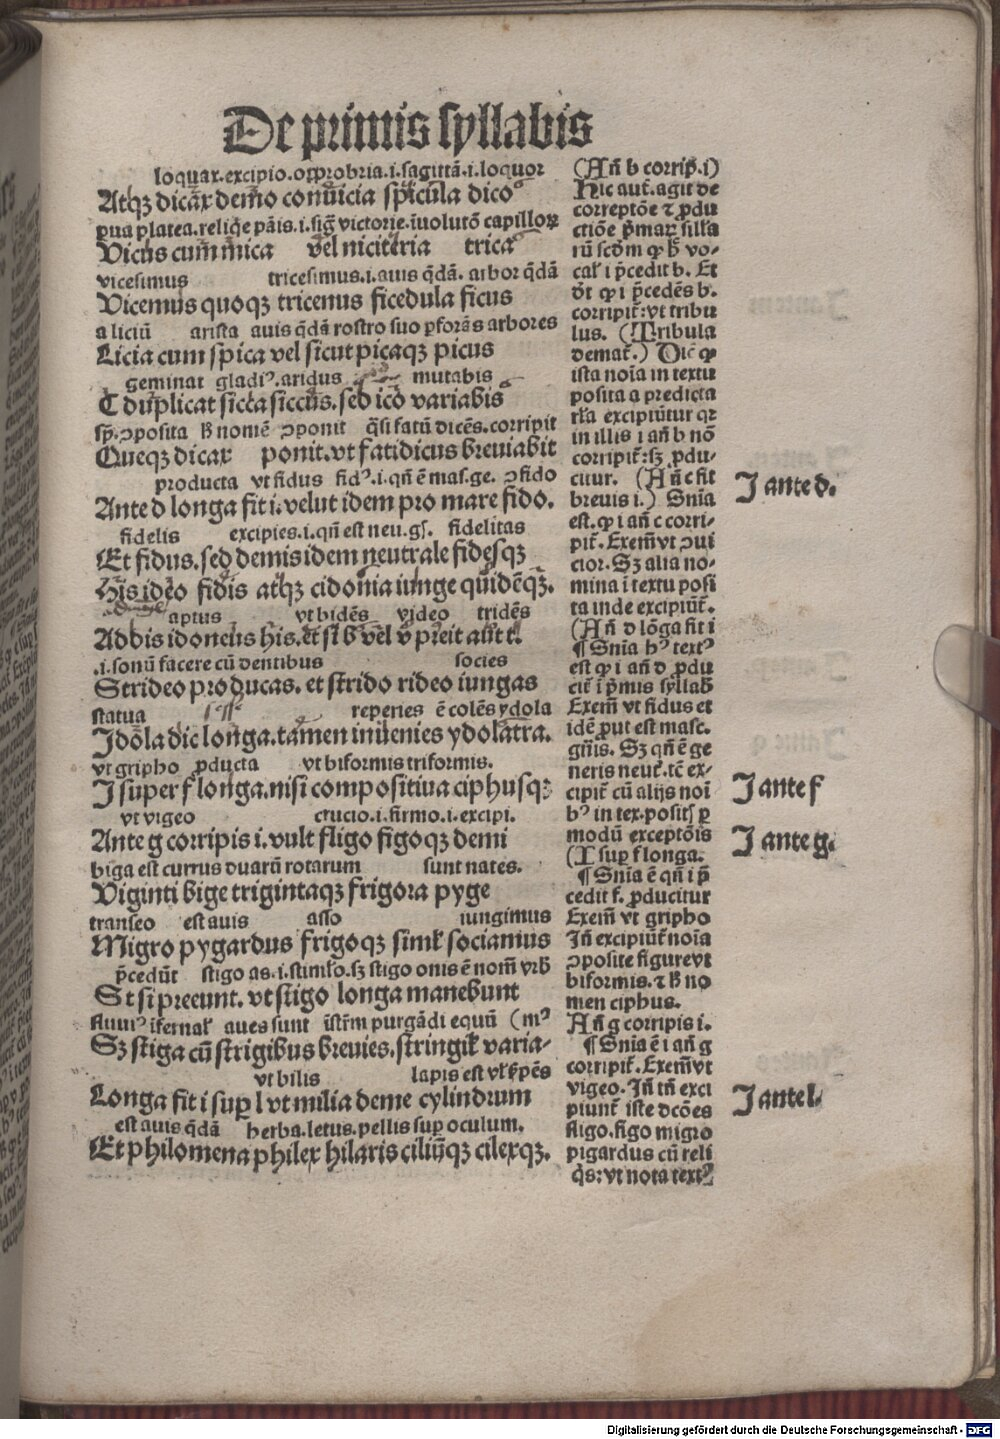 De primis syllabis
loquax.excipio.opprobria.i.sagittā.i.loquor
Atqꝫ dicax demo conuicia spicula dico
pua platea.reliqͥe pāis.i.sig̃ victorie.īuolutō capilloꝝ
Vicus cum mica vel niciteria trica
vicesimus tricesimus.i.auis q̄dā. arbor q̄dā
Vicenus quoqꝫ tricenus ficedula ficus
a liciū arista auis q̄dā rostro suo ꝑforās arbores
Licia cum spica vel sicut picaqꝫ picus
geminat gladiꝰ.aridus mutabis
C duplicat sicca siccus.sed ico variabis
sp̄.ꝯposita ħ nomē ꝯponit q̄si fatū dicēs.corripit
Queqꝫ dicax ponit.vt fatidicus breuiabit
producta vt fidus fidꝰ.i.qn̄ ē mas.ge. ꝯfido
Ante d longa fit i.velut idem pro mare fido.
fidelis excipies.i.qn̄ est neu.gñ. fidelitas
Et fidus.sed demis idem neutrale fidesqꝫ
His ideo fidis atqꝫ cidonia iunge quidēqꝫ.
aptus vt bidēs video tridēs
Ad bis idoneus his.et si b vel v preit aut t.
.i.sonū facere cū dentibus socies
Strideo producas.et strido rideo iungas
statua reperies ē colēs ydola
Idola dic longa.tamen inuenies ydolatra.
vt gripho ꝓducta vt biformis triformis.
I super f longa.nisi compositiua ciphusqꝫ
vt vigeo crucio.i.firmo.i.excipi.
Ante g corripis i.vult fligo figoqꝫ demi
biga est currus duarū rotarum sunt nates.
Viginti bige trigintaqꝫ frigora pyge
transeo est auis asso iungimus
Migro pygardus frigoqꝫ simĺ sociamus
p̄cedūt stigo as.i.stimĺo.sꝫ stigo onis ē nom̄ vrb̄
St si preeunt.vt stigo longa manebunt
fluuiꝰ īfernaĺ aues sunt īstr̄m purgādi equū (mꝰ
Sꝫ stiga cū strigibus breuies.stringiĺ varia-
vt bilis lapis est
Longa fit i suꝑ l vt milia deme cylindrum
est auis q̄dā herba.letus.pellis suꝑ oculum.
Et philomena philex hilaris ciliūqꝫ cilexqꝫ.
(Añ b corriꝑ.i)
Hic aut̄.agit de
correptōe ⁊ ꝓdu
ctiōe p̄maꝝ silla
rū scd̄m ꝙ ħ vo-
caĺ i p̄cedit b. Et
dt̄ ꝙ i p̄cedēs b.
corripit̄:vt tribu
lus. (Tribula
demat̄.) Dic̄ ꝙ
ista noīa in textu
posita a predicta
rĺa excipiūtur qꝛ
in illis i añ b nō
corripit̄:sꝫ ꝓdu-
citur. (Añ c fit
breuis i.) Snīa
est.ꝙ i añ c corri-
pit̄.Exem̄ vt ꝯui
cior. Sꝫ alia no-
mina ī textu posi
ta inde excipiūt̄.
(Añ d lōga fit i
¶Snīa hꝰ textꝰ
est ꝙ i añ d ꝓdu
cit̄ ī p̄mis syllab̄
Exem̄ vt fidus et
idē ꝓut est masc.
gñis. Sꝫ qn̄ ē ge
neris neut̄.tc̄ ex-
cipit̄ cū alijs noī
bꝰ in tex.positꝭ ꝑ
modū exceptōis
(I suꝑ f longa.
¶Snīa ē qn̄ i p̄
cedit f. ꝓducitur
Exem̄ vt gripho
Iñ excipiūt̄ noīa
ꝯposite figure vt
biformis.⁊ ħ no
men ciphus.
Añ g corripis i.
¶Snīa ē i añ g
corripit̄.Exem̄ vt
vigeo.Iñ tn̄ exci
piunt̄ iste dcōes
fligo.figo migro
pigardus cū reli
q̄s:vt nota textꝰ
I ante d.
I ante f
I ante g.
I ante l.
Digitalisierung gefördert durch die Deutsche Forschungsgemeinschaft - DFG